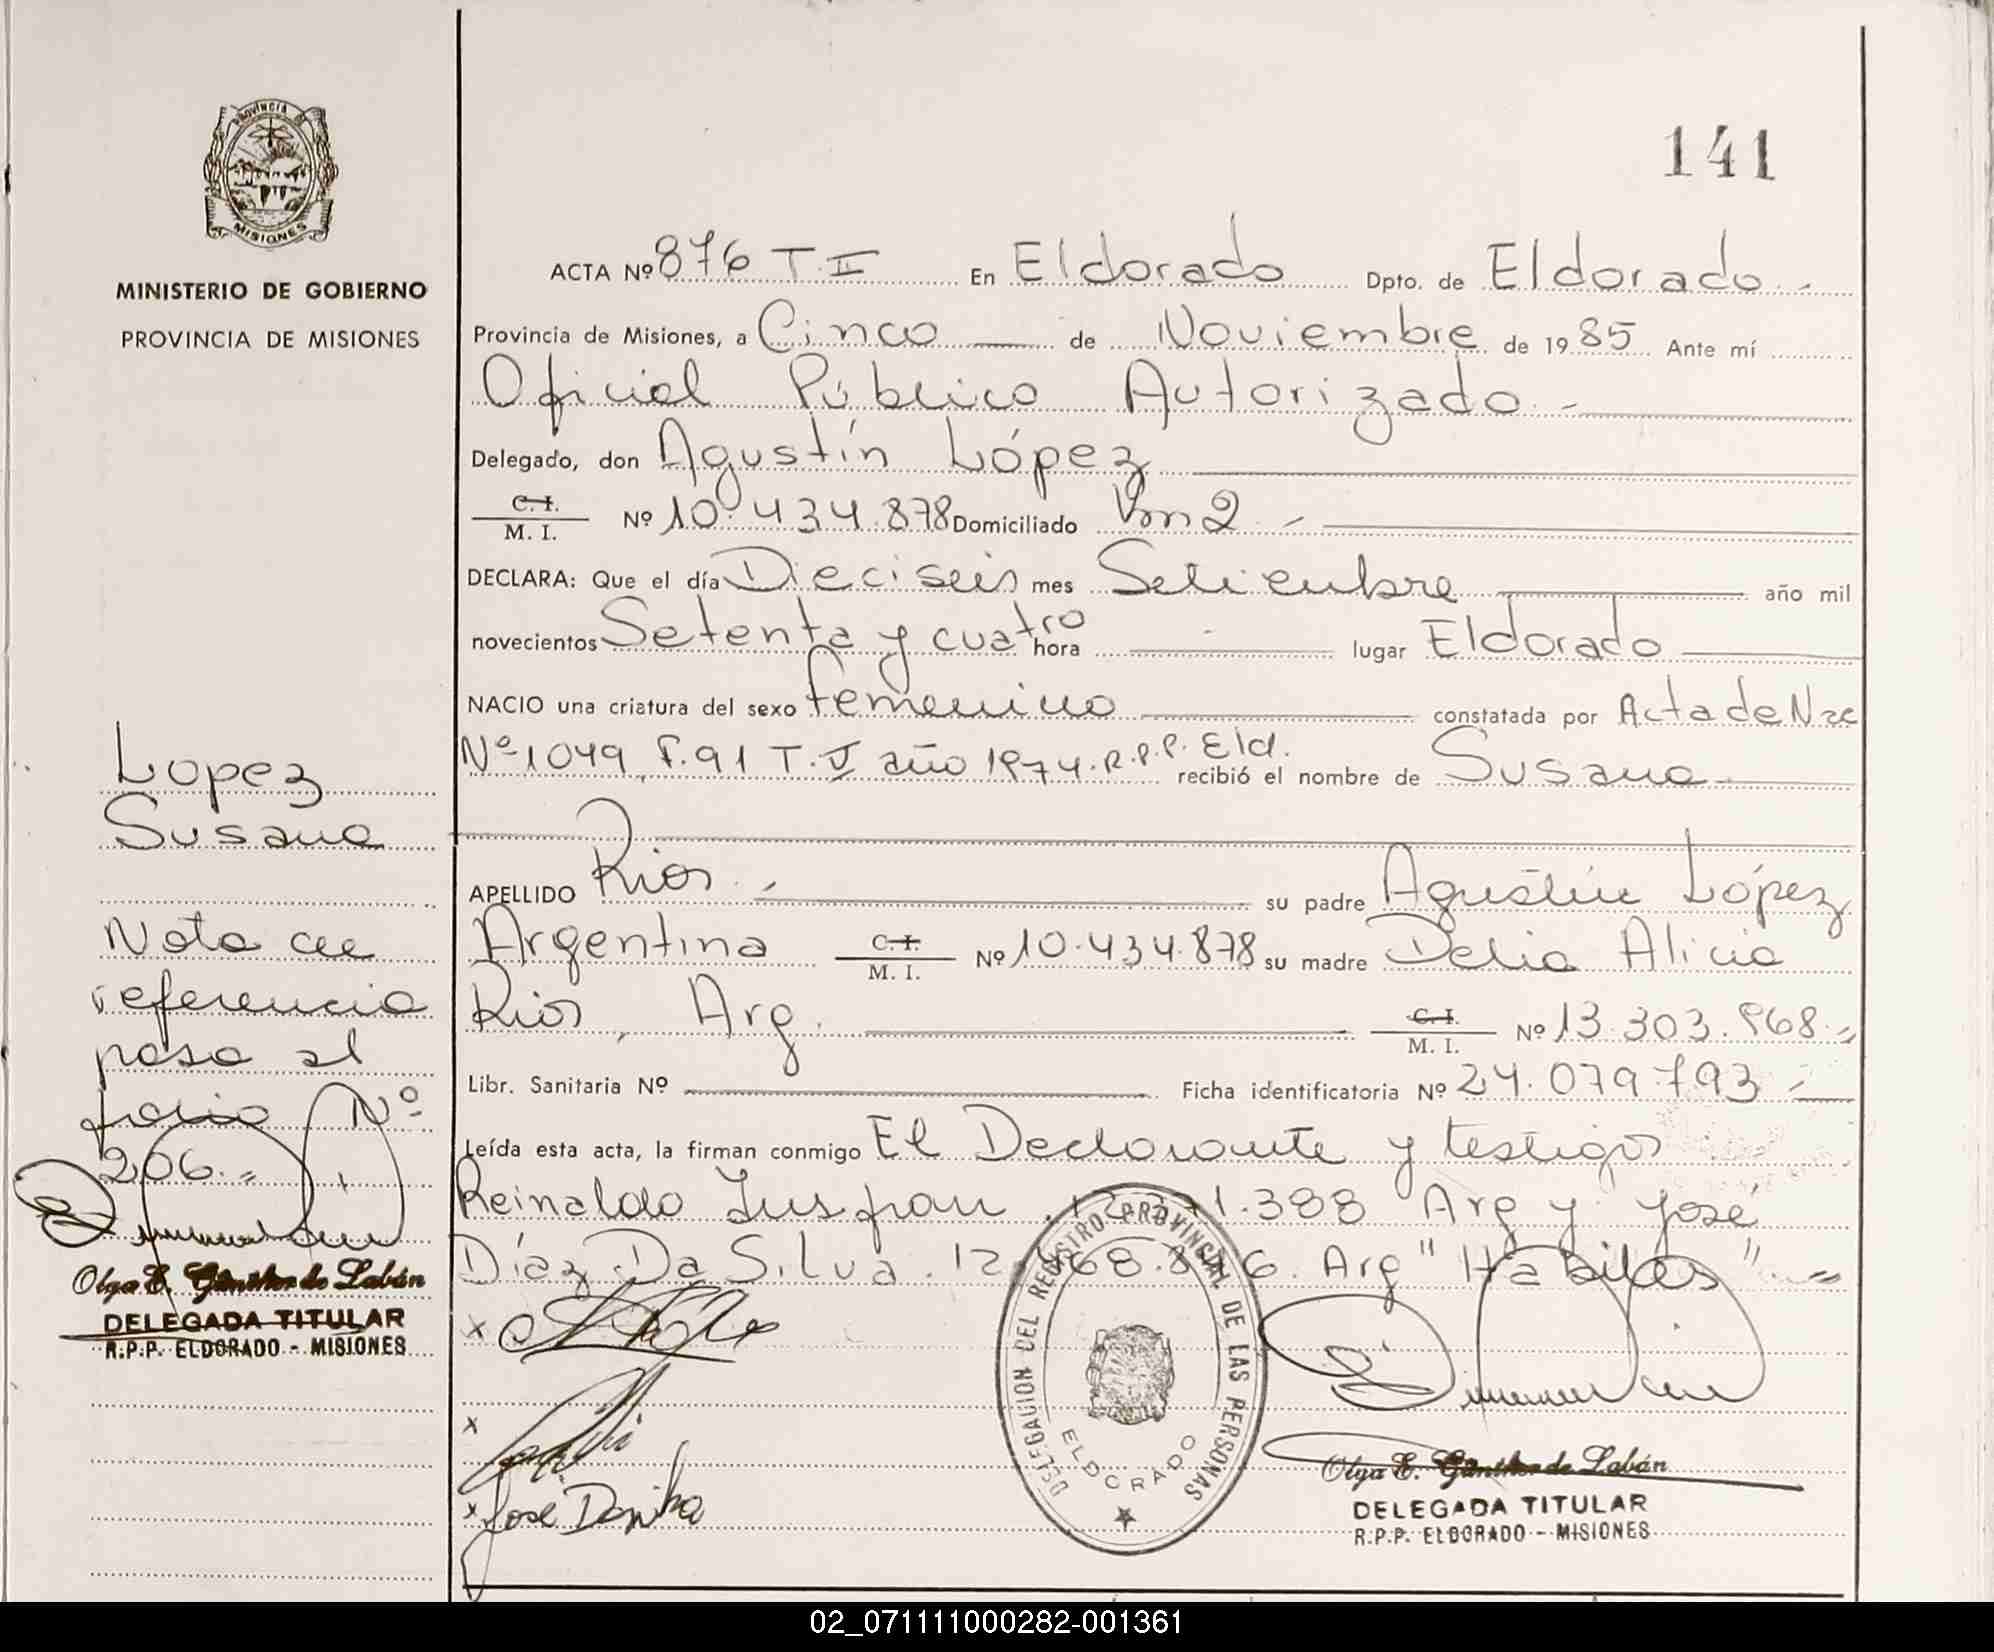 PROVINCIA D
MISIONES
MINISTERIO DE GOBIERNO
PROVINCIA DE MISIONES
Lopez
Susana
Nota de
referencia
pasa al
folio Nº
206.-
Olga E. Günther de Labán
DELEGADA TITULAR
R.P.P. ELDORADO - MISIONES
141
ACTA Nº 876 T. II En Eldorado Dpto. de Eldorado.-
Provincia de Misiones, a Cinco de Noviembre de 1985 Ante mí
Oficial Público Autorizado.-
Delegado, don Agustín López
C. I. / M. I. Nº 10.434.878 Domiciliado Km 2.-
DECLARA: Que el día Dieciseis mes Setiembre año mil
novecientos Setenta y cuatro hora - lugar Eldorado
NACIO una criatura del sexo femenino constatada por Acta de Nac
Nº 1049 F. 91 T. V año 1974. R.P.P. Eld. recibió el nombre de Susana
APELLIDO Rios.- su padre Agustín López
Argentina C. I. / M. I. Nº 10.434.878 su madre Delia Alicia
Rios, Arg. C. I. / M. I. Nº 13.303.968.-
Libr. Sanitaria Nº Ficha identificatoria Nº 24.079.793.-
Leída esta acta, la firman conmigo El Declarante y testigos
Reinaldo 1.388 Arg y José
Díaz Da Silva. 12. 68.8 6. Arg "Habiles".-
x
x
x José
DELEGACION DEL REGISTRO PROVINCIAL DE LAS PERSONAS
ELDORADO
Olga E. Günther de Labán
DELEGADA TITULAR
R.P.P. ELDORADO - MISIONES
02_071111000282-001361